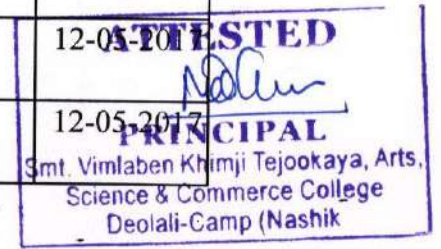 12-05-2017
ATTESTED
12-05-2017
PRINCIPAL
Smt. Vimlaben Khimji Tejookaya, Arts,
Science & Commerce College
Deolali-Camp (Nashik